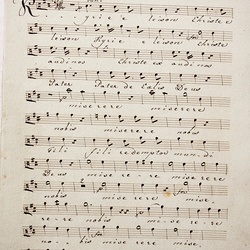 Kyrie e leison Christe e
leison Kyrie e leison Christe
audi nos Christe ex audi nos
Pater Pater de Cælis Deus
miserere miserere
nobis miserere nobis
fili fili redemptor mun di
Deus mise re re mise rere
nobis mise rere mise
re re nobis mi se re re
no bis mise rere mise